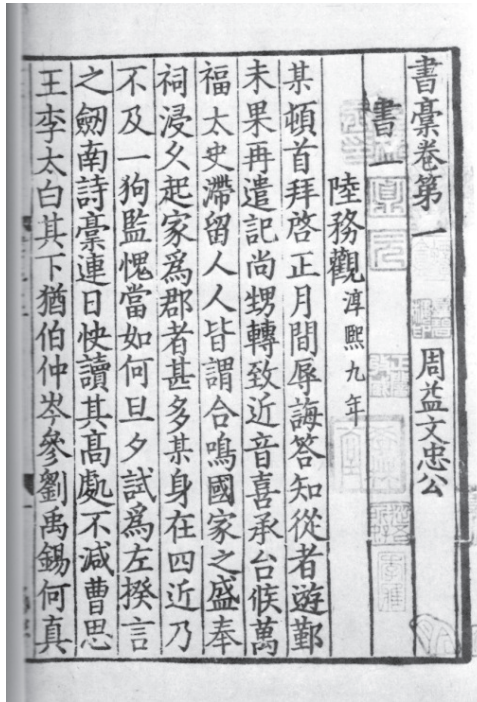 書稾卷第一 周益文忠公
書一
陸務觀 淳熙九年
某頓首拜啓正月間辱誨答知從者遊鄞
未果再遣記尚甥轉致近音喜承台候萬
福太史滯留人人皆謂合鳴國家之盛奉
祠浸久起家爲郡者甚多某身在四近乃
不及一狗監愧當如何旦夕試爲左揆言
之劒南詩稾連日快讀其高處不減曹思
王李太白其下猶伯仲岑參劉禹錫何真